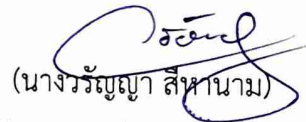 (นางวรัญญา สีหานาม)